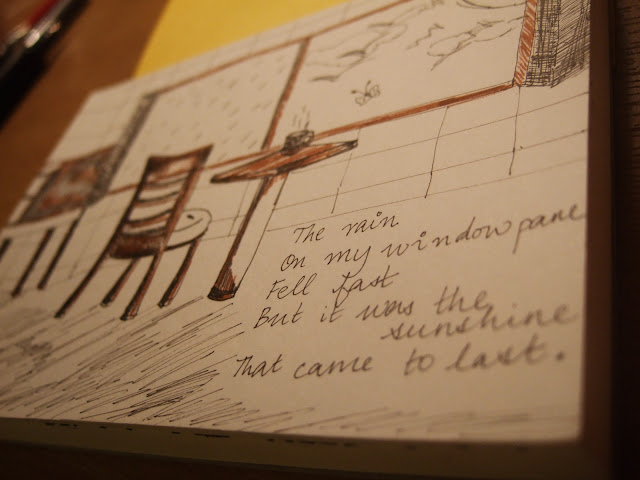 The rain
On my window pane
Fell fast
But it was the
sunshine
That came to last.